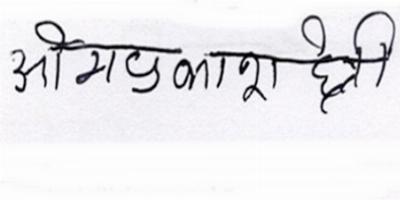 ओमप्रकाश छेत्री